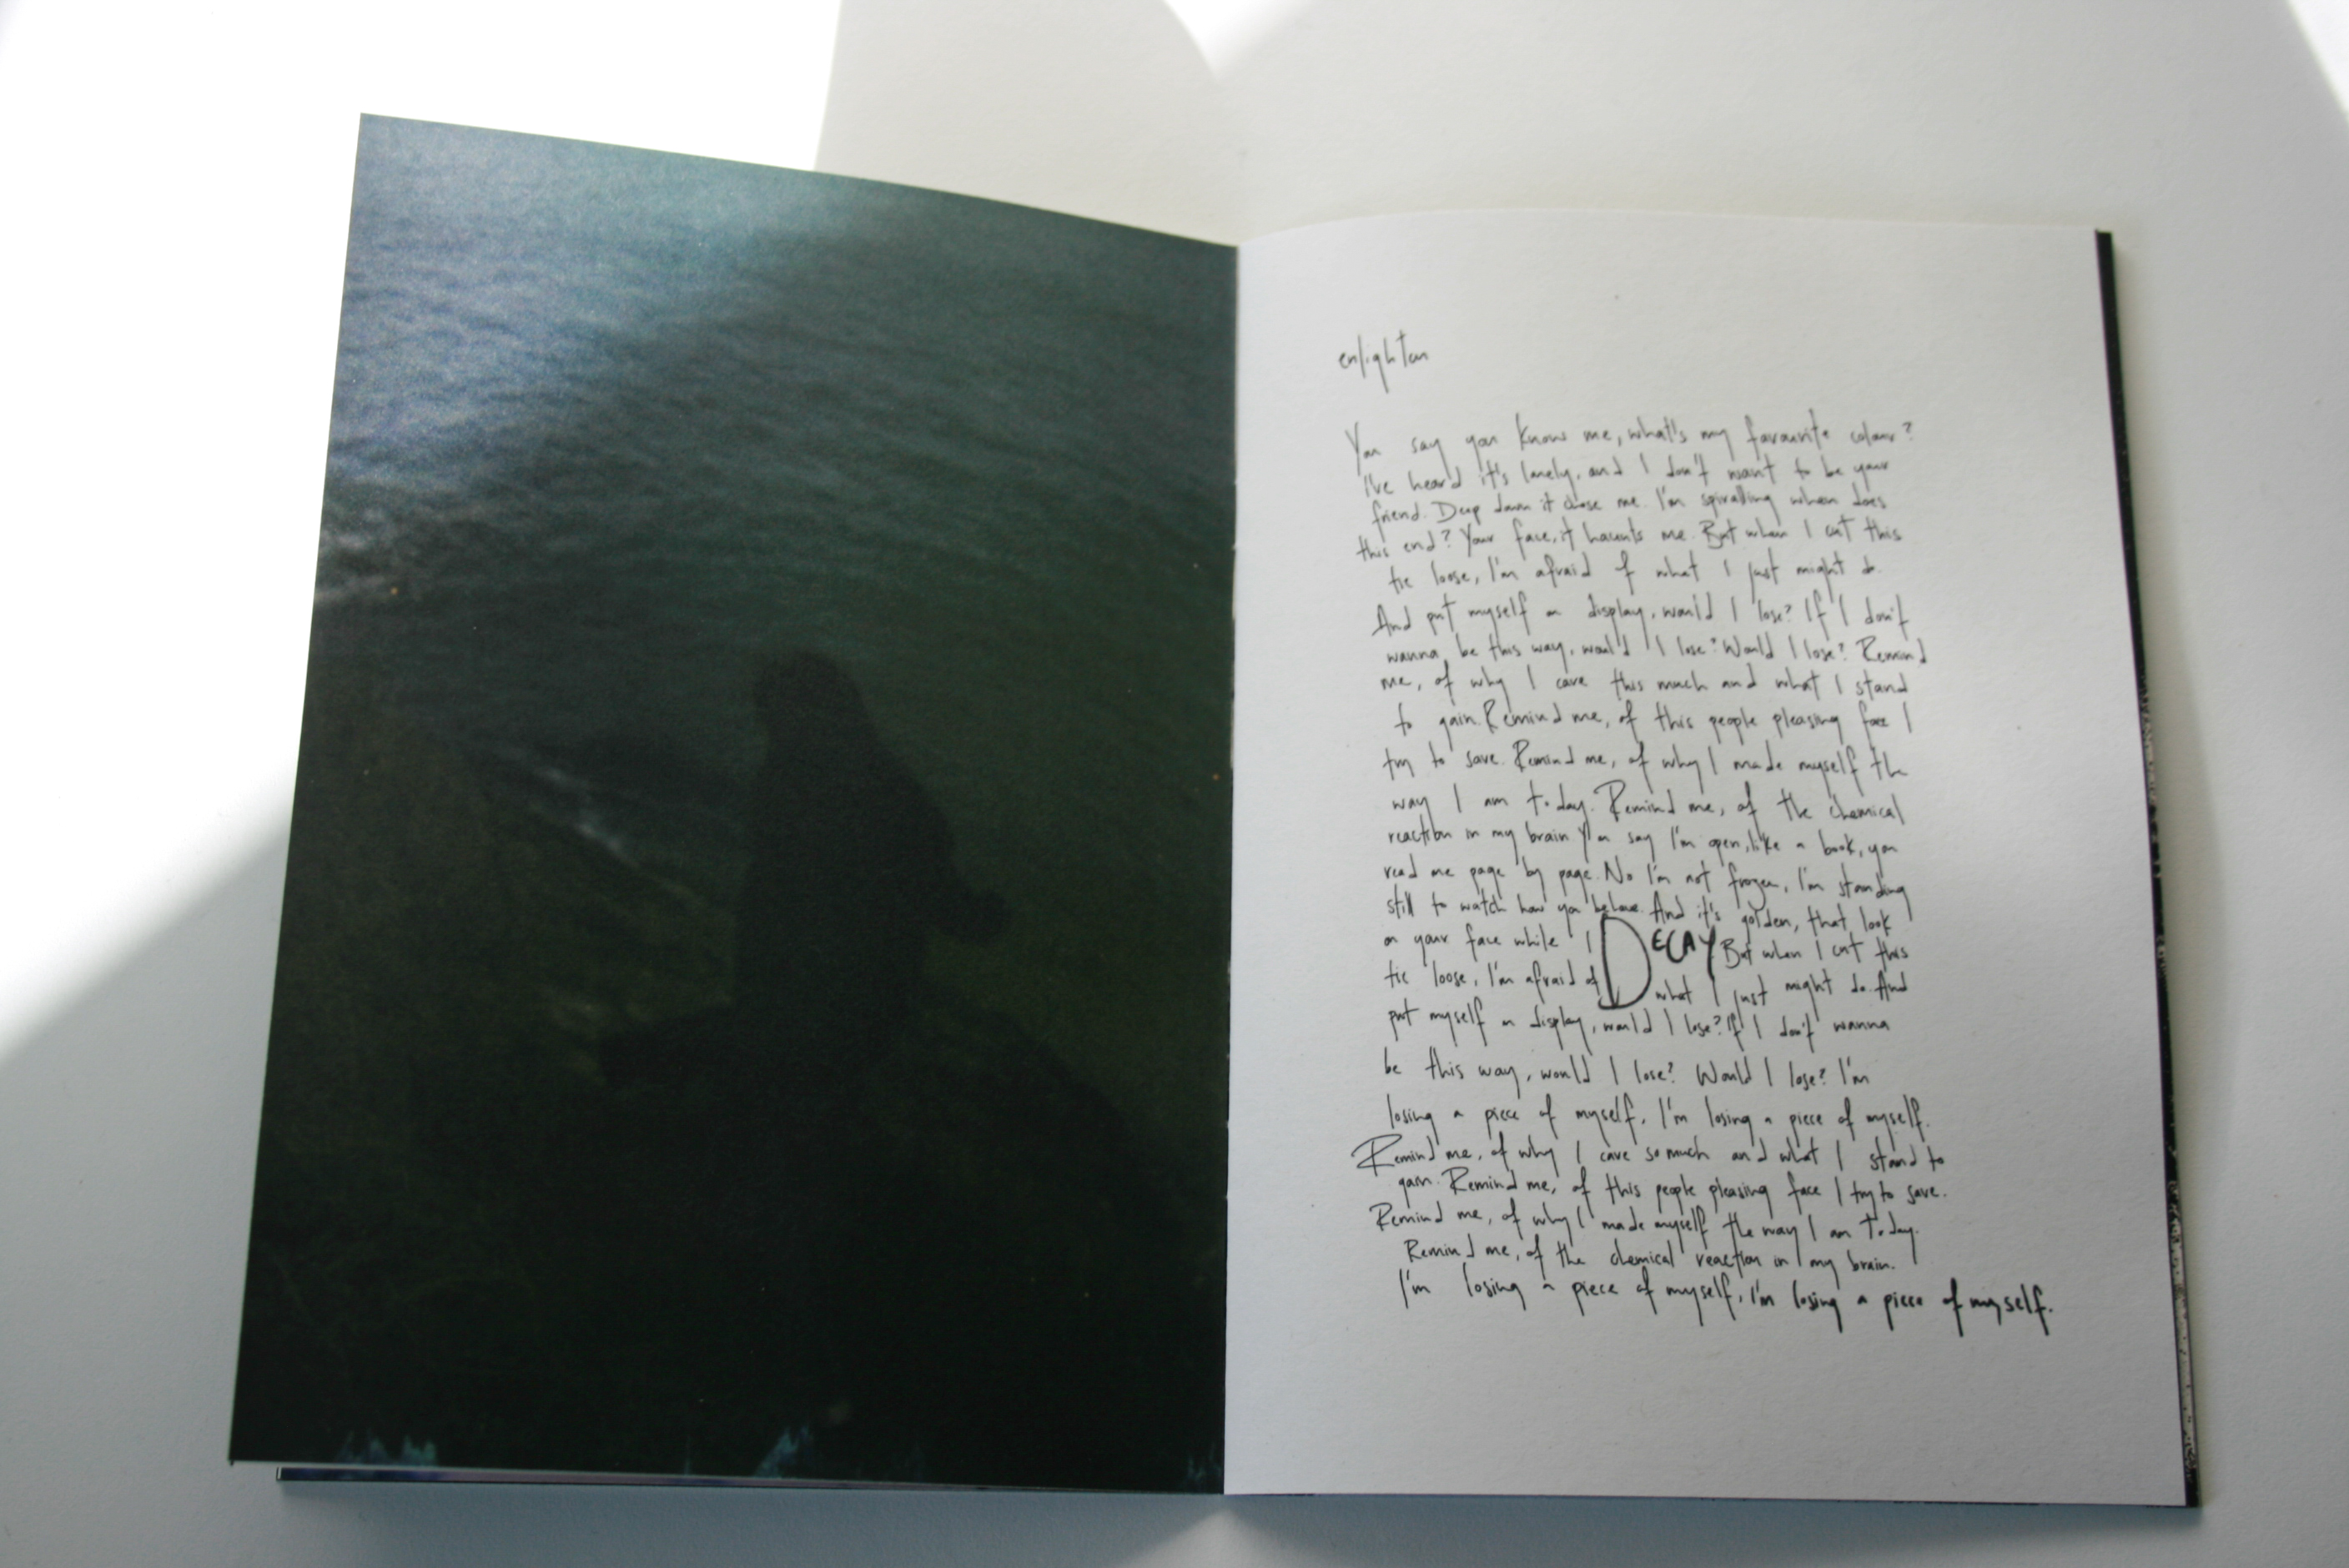 enlighten
You say you know me, what's my favourite colour?
I've heard it's lonely, and I don't want to be your
friend. Deep down it chose me. I'm spiralling when does
this end? Your face, it haunts me. But when I cut this
tie loose, I'm afraid of what I just might do.
And put myself on display, would I lose? If I don't
wanna be this way, would I lose? Would I lose? Remind
me, of why I care this much and what I stand
to gain. Remind me, of this people pleasing face I
try to save. Remind me, of why I made myself the
way I am today. Remind me, of the chemical
reaction in my brain. You say I'm open, like a book, you
read me page by page. No I'm not frozen, I'm standing
still to watch how you behave. And it's golden, that look
on your face while I DECAY. But when I cut this
tie loose, I'm afraid of what I just might do. And
put myself on display, would I lose? If I don't wanna
be this way, would I lose? Would I lose? I'm
losing a piece of myself, I'm losing a piece of myself.
Remind me, of why I care so much and what I stand to
gain. Remind me, of this people pleasing face I try to save.
Remind me, of why I made myself the way I am today.
Remind me, of the chemical reaction in my brain.
I'm losing a piece of myself, I'm losing a piece of myself.